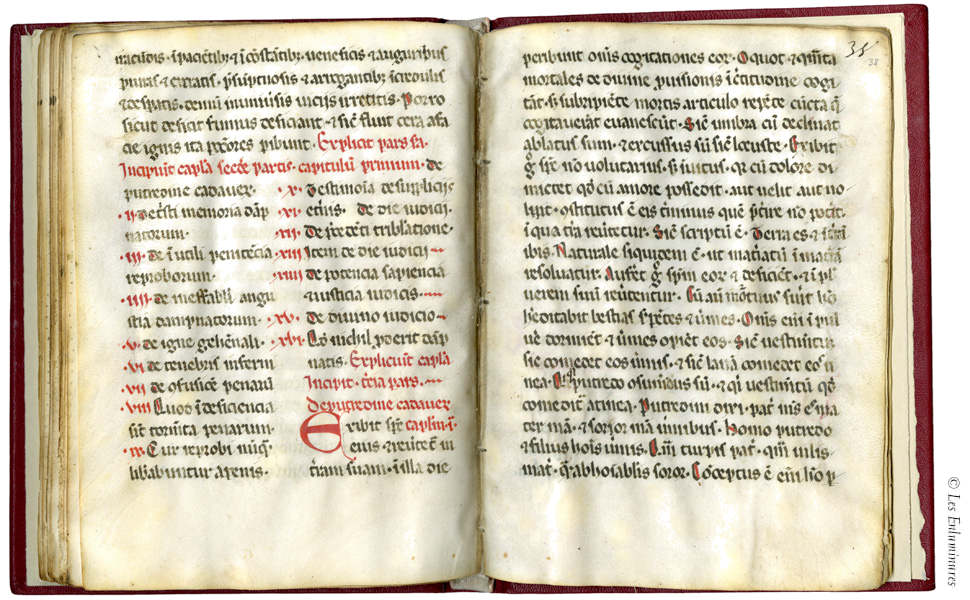 iracūdis · īpaciētibꝫ ⁊ īcōstātibꝫ · veneficis ⁊ auguribus
⁊ arrogantibꝫ īcredulis
⁊ desperatis · demū inuiciis irretitis · Porro
sicut deficit fumus deficiant · ⁊ siĉ fluit cera a fa
cie ignis ita pcc̄ores pibunt · Explicit pars s̄a ·
Incipiūt capl̄a secd̄e partis · capitulū primum · de
putredine cadauer ·
· II · memoria dāp
natorum ·
· III · de īutili penitēcia
reproborum ·
· IIII · de ineffabili angu
stia dampnatorum ·
· V · de igne gehēnali ·
· VI · de tenebris inferni
· VII · de ꝯfusiōe penarū
· VIII · Quod īdeficiencia
sūt torm̄ta penarum ·
· IX · Cur reprobi nūq̄
libābuntur a penis ·
· X · Testimōia de suppliciis
· XI · et̄nis · De die iudicij ·
· XII · de p̄cedēti tribl̄atione ·
· XIII · Item de die iudicii
· XIIII · de potencia sapiencia
⁊ iusticia iudicis ·
· XV · De diuino iudicio
· XVI · Qd̄ nichil ꝓderit dāp
natis · Expliciūt capl̄a
Incipit · t̄cia pars ·
de putredine cadauer
Exibit sp̄c capl̄m · I ·
eius ⁊ reuertet̄ in
t̄ram suam · ī illa die
35
38
peribunt oīīs cogitationes eor̄ · O quot ⁊ q̄nta
mortales de diuine ꝓuisionis īc̄titudine cogi
tāt · s; subripiēte mortis articulo repēte cūcta q̄
cogitauerāt euanescūt · Siĉ umbra cū declinat
ablatus sum · ⁊ excussus sū siĉ locuste · Exibit
g° sp̄c nō voluntarius · s; inuitus · qꝛ cū dolore di
mictet qd̄ cū amore possedit · aut uelit aut no
lit · ꝯstitutus ē eis t̄minus quē p̄t̄ire nō pot̄it ·
ī qua t̄ra reūtetur · Siĉ scriptū ē · Terra es ⁊ in t̄ra
ibis · Naturale siquidem ē · ut mat̄iatū ī mat̄iā
resoluatur · Aufer̄t g° sp̄m eor̄ ⁊ deficiēt · ⁊ ī pul
uerem suū reūtentur · Cū aū mortuus fu̇it hō
hereditabit bestias s̄pētes ⁊ ūmes · Oīīs eī ī pul
uē dormiēt ⁊ ūmes opiēt eos · Siĉ uestimētū
sic comedet eos ūmis · ⁊ siĉ lanā comedet eos ti
nea · Qi putredo ꝯsumēdus sū · ⁊ qi uestimētū qd̄
comedit̄ a tinea · Putredini dixi · pat̄ mīs es · ma
ter mā · ⁊ soror mā ūmibus · Homo putredo
⁊ filius hoīs ūmis · Qm̄ turpis pat̄ · qm̄ uilis
mat̄ · q̄ abhoīabilis soror · Cōceptus ē eī hō p
© Les Enluminures